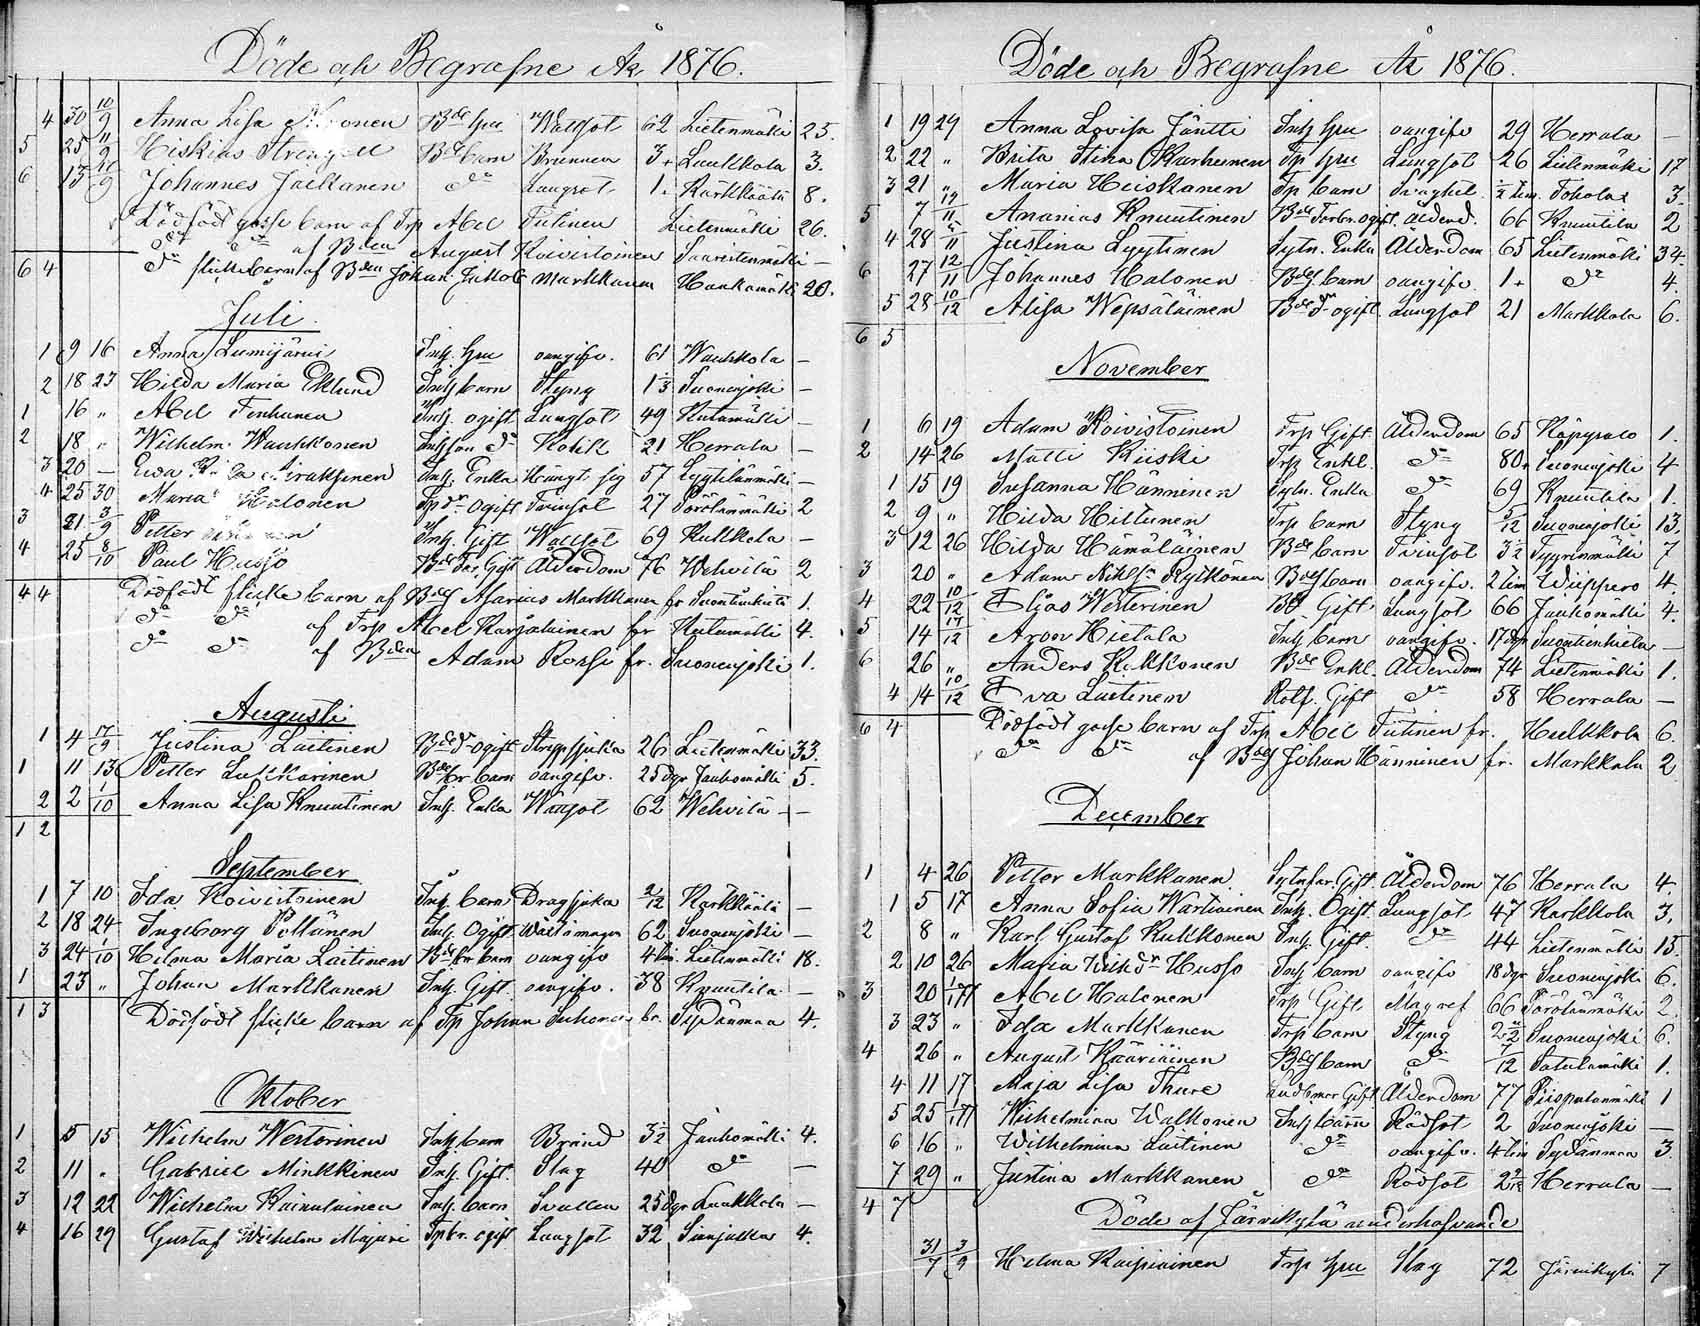 Döde och Begrafne År 1876.
4 30 10/9 Anna Lisa Bde Hru Wattsot 62 Lietenmäki 25.
5 25 11/9 Hiskias Bde barn Brunnen 3 Laukkala 3.
6 13 Johannes Jalkanen do Lungsot 1 Karkkäälä 8.
Dödfödt gosse barn af Trp Abel Tiitinen Lietenmäki 26.
do do af Bden August Koivistoinen Suureitenmäki —
6 4 do flickebarn af Bden Johan Jakob Markkanen Haukamäki 20.
Juli
1 9 16 Anna Lumijärvi Inh. Hru oangifv. 61 Wauhkola —
2 18 23 Hilda Maria Eklund Inh barn Styng 1 1/3 Suonenjoki —
1 16 „ Abel Tenhunen Inh. ogift Lungsot 49 Kutumäki —
2 18 „ Wilhelm Wauhkonen Inh son do Kolik 21 Herrala —
3 20 — Ewa Inh. Enka Hängt sig 57 Lyytilänmäki —
4 25 30 Maria Halonen Trp dr ogift Tvinsot 27 Pörölänmäki 2
3 21 3/9 Petter Inh. Gift Wattsot 69 Kukkola —
4 25 8/10 Paul Husso Bde Far Gift Ålderdom 76 Wehvilä 2
4 4 Dödfödt flicke barn af Bdes Asarias Markkanen fr Suontienkieli 1.
do do af Trp Abel Karjalainen fr Kutumäki 4.
do do af Bden Adam Rossi fr. Suonenjoki 1.
Augusti
1 4 17/9 Justina Laitinen Bde dr ogift Strypsjuka 26 Lietenmäki 33.
1 11 13 Petter Lukkarinen Bde br barn oangifv. 25 dgr Jauhomäki 5.
2 2 1/10 Anna Lisa Knuutinen Inh. Enka Wattsot 62 Wehvilä —
1 2
September
1 7 10 Ida Koivistoinen Inh. barn Dragsjuka 2/12 Karkkäälä —
2 18 24 Ingeborg Pöllänen Inh. Ogift Wärk i magen 62 Suonenjoki —
3 24 1/10 Helma Maria Laitinen Bde br barn oangifv 4 tim. Lietenmäki 18.
1 23 „ Johan Markkanen Inh. Gift. oangifv. 38 Knuutila —
1 3 Dödfödt flicke barn af Trp Johan Suhonen fr. Sydänmaa 4.
Oktober
1 5 15 Wilhelm Westerinen Inh. barn Bränd 3 1/2 Jauhomäki 4.
2 11 „ Gabriel Minkkinen Inh. Gift. Slag 40 do —
3 12 22 Wilhelm Kainulainen Inh. barn Svullen 25 dgr Laukkala —
4 16 29 Gustaf Wilhelm Majuri Trp br. ogift Lungsot 32 4.
Döde och Begrafne År 1876.
1 19 29 Anna Lovisa Jäntti Inh Hru oangifv 29 Herrala —
2 22 „ Brita Stina Karhunen Trp Hru Lungsot 26 Lietenmäki 17
3 21 „ Maria Heiskanen Trp barn 1/2 tim. Toholax 3.
5 7 12/11 Ananias Knuutinen Bde Farbr. ogift Ålderd. 66 Knuutila 2
4 28 5/11 Justina Lyytinen Sytn. Enka Ålderdom 65 Lietenmäki 34.
6 27 12/11 Johannes Halonen Bdes. barn oangifv. 1 do 4.
5 28 10/12 Alisa Wepsäläinen Bde dr ogift Lungsot 21 Markkala 6.
6 5
November
1 6 19 Adam Koivistoinen Trp Gift Ålderdom 65 Käpysalo 1.
2 14 26 Matti Kiiski Trp Enkl. do 80 Suonenjoki 4
1 15 19 Susanna Hänninen Sytn. Enka do 69 Knuutila 1.
2 9 „ Hilda Hiltunen Trp barn Styng 5/12 Suonenjoki 13.
3 12 26 Hilda Hämäläinen Bde barn Tvinsot 3 1/2 Tyyrinmäki 7
3 20 „ Adam Niklsn Rytkönen Bdes barn oangifv. 2 tim Wiippero 4.
4 22 10/12 Elias Westerinen Bd Gift Lungsot 66 Jauhomäki 4.
5 14 17/12 Aron Hietala Inh barn oangifv. 17 dgr Suontienkieli —
6 26 „ Anders Kokkonen Bde Enkl. Ålderdom 74 Lietenmäki 1.
4 14 10/12 Eva Laitinen Rotf. Gift do 58 Herrala —
6 4 Dödfödt gosse barn af Trp Abel Tiitinen fr. Kukkola 6.
do do af Bdes Johan Hänninen fr. Markkala 2
December
1 4 26 Petter Markkanen Sytnfar. Gift Ålderdom 76 Herrala 4.
1 5 17 Anna Sofia Wartiainen Inh. Ogift Lungsot 47 Karkkola 3.
2 8 „ Karl Gustaf Kukkonen Inh. Gift. do 44 Lietenmäki 15.
2 10 26 Maria Wilh dr Husso Inh barn oangifv 18 dgr Suonenjoki 6.
3 20 1/1 77 Abel Halonen Trp Gift Magref 66 Pörölänmäki 2.
3 23 „ Ida Markkanen Trp barn Styng 2 Suonenjoki 6.
4 26 „ August Kääriäinen Bdes barn do 7/12 Sahalamäki 1.
4 11 17 Maja Lisa Thure Gift Ålderdom 77 Piispalanmäki 1
5 25 1/1 77 Wilhelmina Walkonen Inh barn Rödsot 2 Suonenjoki —
6 16 „ Wilhelmina Laitinen do oangifv. 4 tim Sydänmaa 3.
7 29 „ Justina Markkanen do Rödsot 2 Herrala —
4 7
Döde af Järvikylä underhafvande
31/7 3/9 Helena Kaipiainen Trp Hru Slag 72 Järvikylä 7